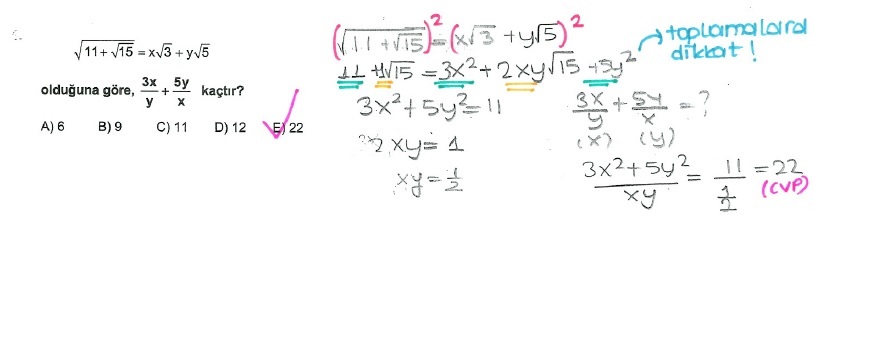 √11 + √15 = x√3 + y√5
olduğuna göre, 3x/y + 5y/x kaçtır?
A) 6 B) 9 C) 11 D) 12 E) 22
(√11 + √15)² = (x√3 + y√5)²
toplamalara
dikkat!
11 + 1√15 = 3x² + 2xy√15 + 5y²
3x² + 5y² = 11
2xy = 1
xy = 1/2
3x/y + 5y/x = ?
(x) (y)
3x² + 5y² / xy = 11 / 1/2 = 22
(CVP)